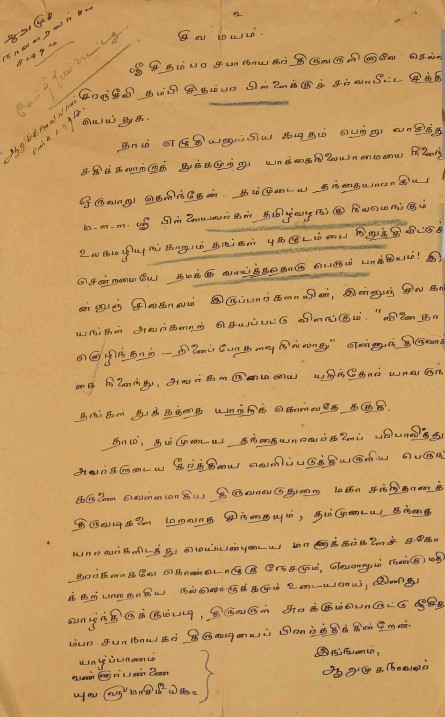 ஆறுமுக
நாவலரவர்கள்
கடிதம்
உ
சிவமயம்.
ஸ்ரீ சிதம்பர சபாநாயகர் திருவருளினாலே செல்வ
சிரஞ்சீவி தம்பி சிதம்பர பிள்ளைக்குச் சர்வாபீட்ட சித்தி
யெய்துக.
தாம் எழுதியனுப்பிய கடிதம் பெற்று வாசித்து
சகிக்கலாற்றாத் துக்கமுற்று யாக்கைநிலையாமையை நினைந்
ஒருவாறு தெளிந்தேன். தம்முடைய தந்தையாராகிய
ம-ள-ள-ஸ்ரீ பிள்ளையவர்கள் தமிழ்வழங்கு நிலமெங்கும்
உலகமழியுங்காறும் தங்கள் புகழுடம்பை நிறுத்திவிட்டுச்
சென்றமையே தமக்கு வாய்த்ததொரு பெரும் பாக்கியம்! இ
ன்னுஞ் சிலகாலம் இருப்பார்களாயின், இன்னுஞ் சில கா
யங்கள் அவர்களாற் செயப்பட்டு விளங்கும். "வினைதா
னொழிந்தாற் - றினைப்போதளவு நில்லாது" என்னுந் திருவாக்
கை நினைந்து, அவர்களருமையை யறிந்தோர் யாவருந்
தங்கள் துக்கத்தை யாற்றிக் கொள்வதே தகுதி.
தாம், தம்முடைய தந்தையாரவர்களைப் பரிபாலித்து
அவர்களுடைய கீர்த்தியை வெளிப்படுத்தியருளிய பெருங்
கருணை வெள்ளமாகிய திருவாவடுதுறை மகா சந்நிதானத்
திருவடிகளை மறவாத சிந்தையும், தம்முடைய தந்தை
யாரவர்களிடத்து மெய்யன்புடைய மாணாக்கர்களைச் சகோ
தரர்களாகவே கொண்டொழுகு நேசமும், எவராலும் நன்கு மதி
க்கற்பாலதாகிய நல்லொழுக்கமும் உடையராய், இனிது
வாழ்ந்திருக்கும்படி, திருவருள் சுரக்கும்பொருட்டு ஸ்ரீசித
ம்பர சபாநாயகர் திருவடியைப் பிரார்த்திக்கின்றேன்.
இங்ஙனம்,
ஆறுமுகநாவலர்
யாழ்ப்பாணம்
வண்ணார்பண்ணை
யுவ ௵ மாசிமீ